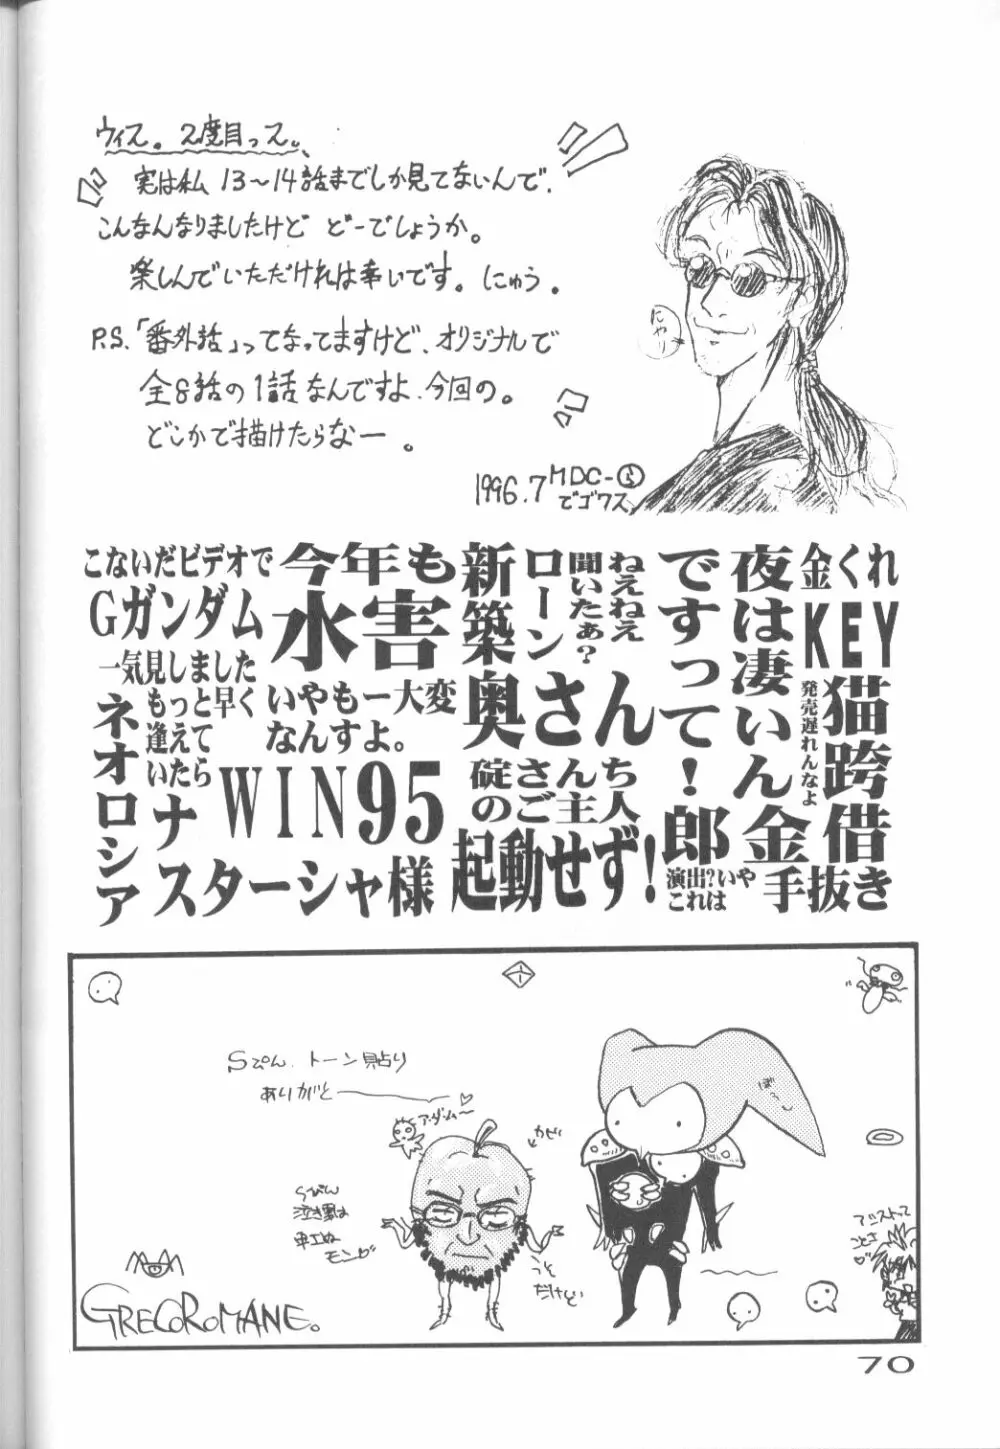 ウィス。2度目っス。
実は私 13〜14話までしか見てないんで、
こんなんなりましたけど どーでしょうか。
楽しんでいただければ幸いです。にゅう。
P.S.「番外話」ってなってますけど、オリジナルで
全8話の1話なんですよ、今回の。
どこかで描けたらなー。
1996.7 MDC-
でゴワス
にやり
こないだビデオで
Gガンダム
一気見しました
ネオロシア
もっと早く
逢えて
いたら
ナスターシャ様
今年も
水害
いやもー大変
なんすよ。
WIN95
起動せず!
新築
ローン
聞いたぁ?
ねえねえ
奥さん
碇さんち
のご主人
ですって!
夜は凄いん
郎
金
演出?いや
これは
手抜き
金くれ
KEY
発売遅れんなよ
猫跨借
Sぴん、トーン貼り
ありがと
アダム〜
カビ
Sぴん
泣き事は
モンが
うそ
だけど
GRECOROMANE。
70